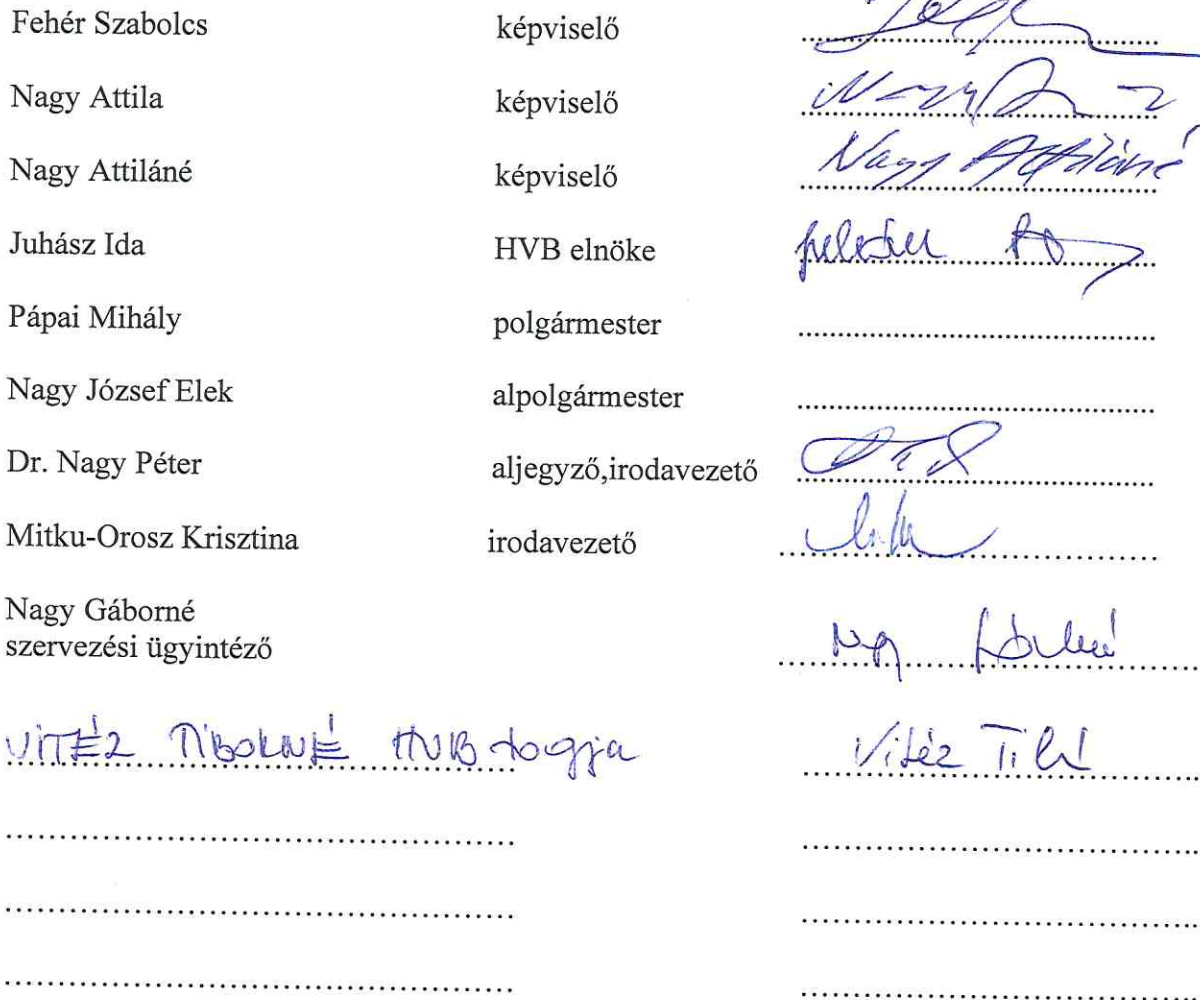 Fehér Szabolcs képviselő
Nagy Attila képviselő
Nagy Attiláné képviselő Nagy Attiláné
Juhász Ida HVB elnöke
Pápai Mihály polgármester
Nagy József Elek alpolgármester
Dr. Nagy Péter aljegyző,irodavezető
Mitku-Orosz Krisztina irodavezető
Nagy Gáborné
szervezési ügyintéző
VITÉZ TIBORNÉ HVB togja Vitéz